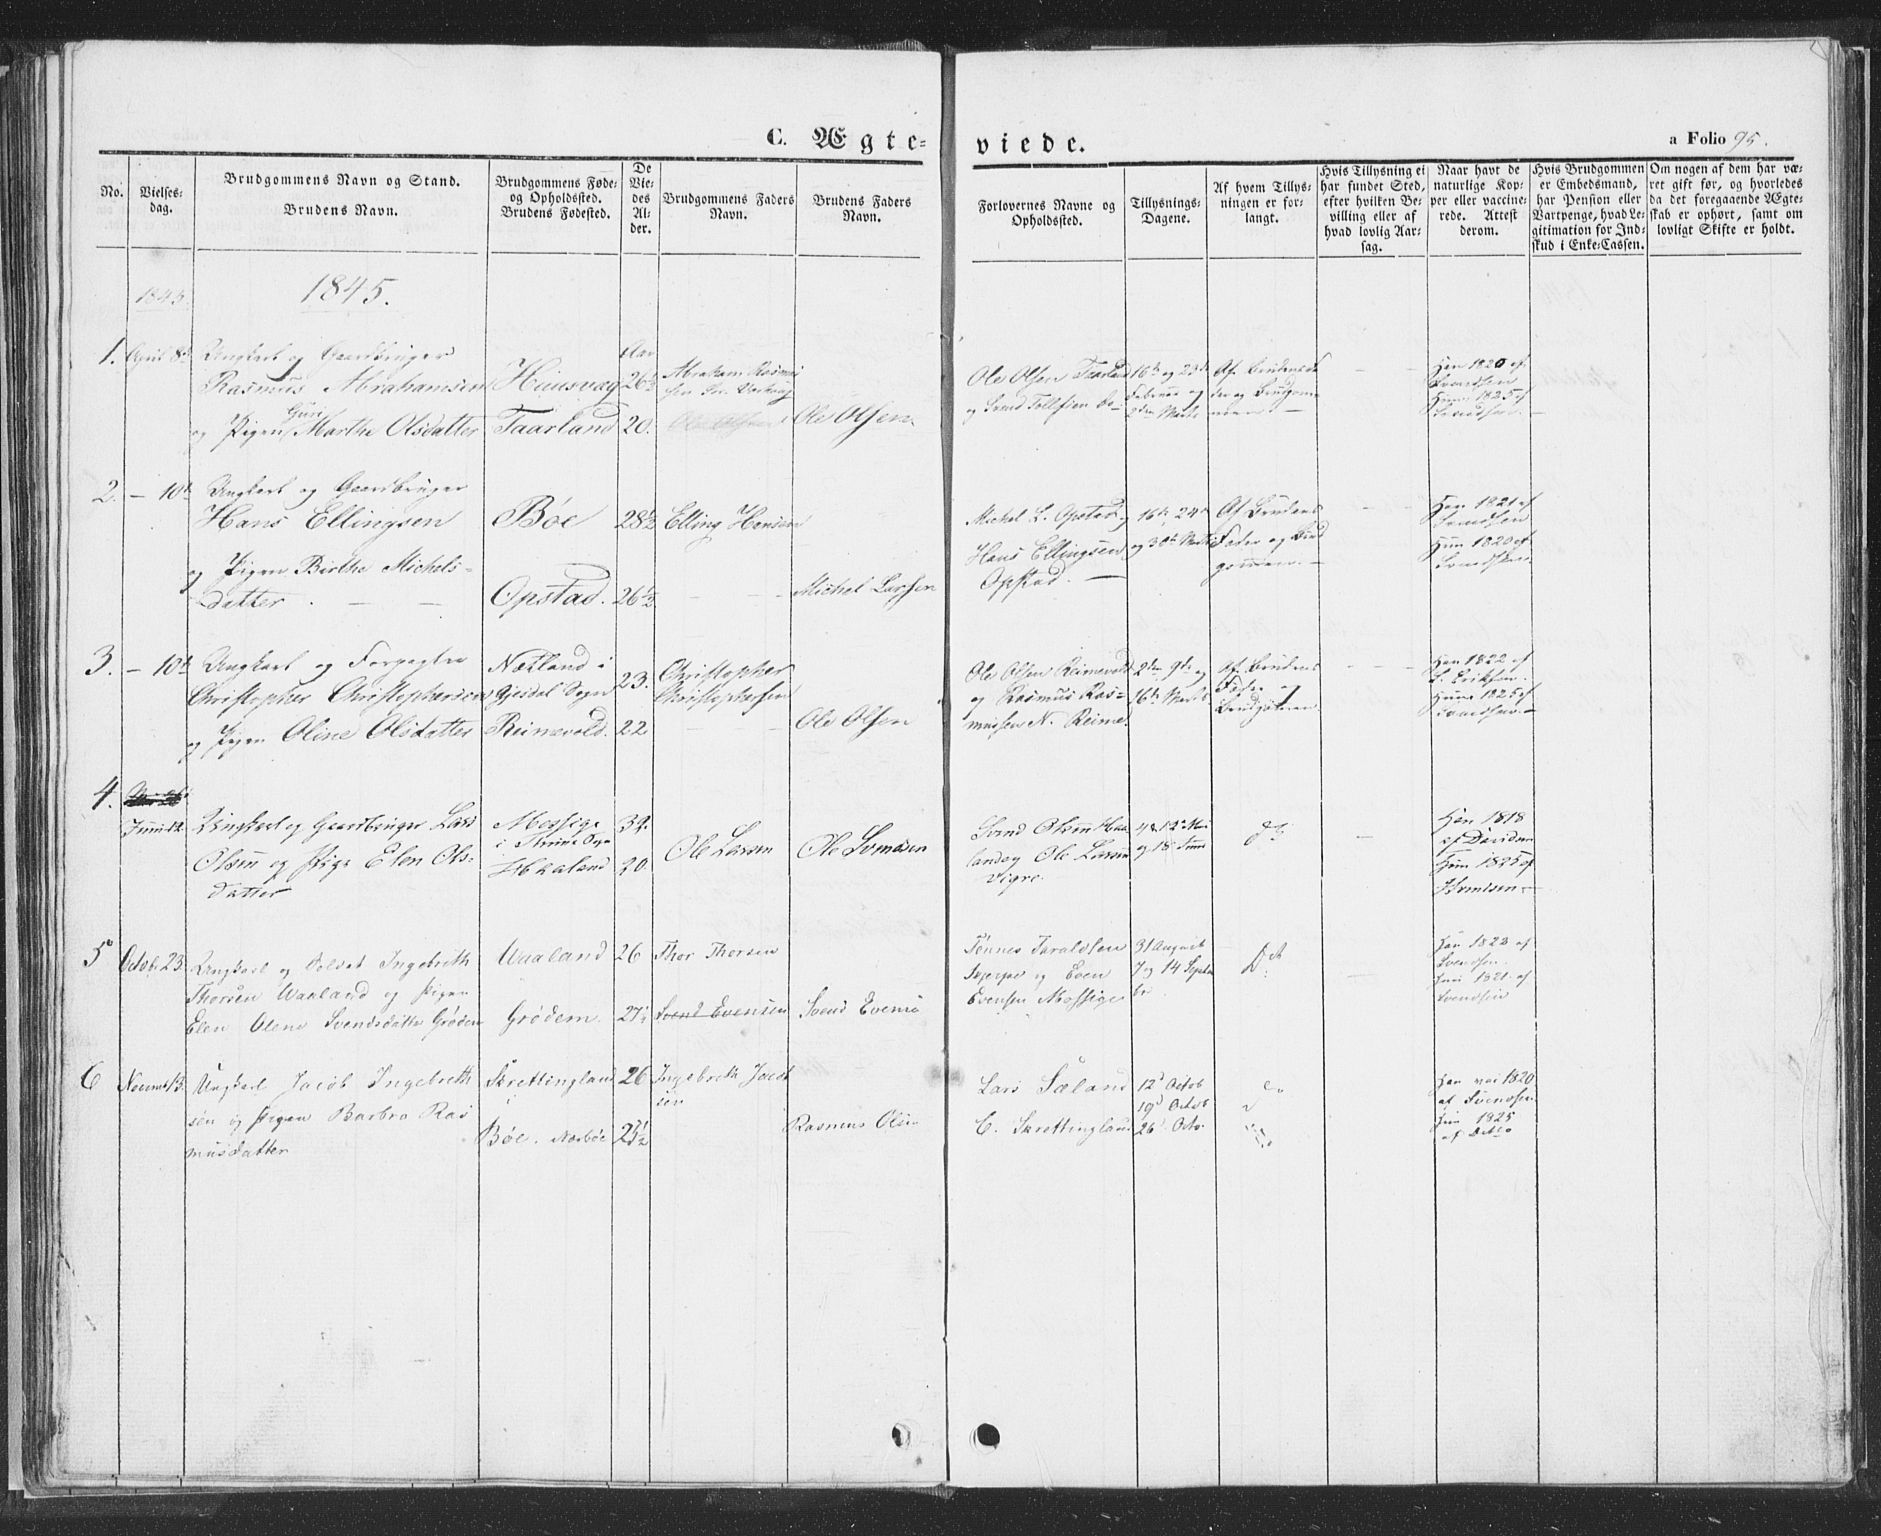 C. Ægte-
viede.
a Folio 95.
No.
Vielses-
dag.
Brudgommens Navn og Stand.
Brudens Navn.
Brudgommens Føde-
og Opholdssted.
Brudens Fødested.
De
Vie-
des
Al-
der.
Brudgommens Faders
Navn.
Brudens Faders
Navn.
Forlovernes Navne og
Opholdssted.
Tillysnings-
Dagene.
Af hvem Tillys-
ningen er for-
langt.
Hvis Tillysning ei
har fundet Sted,
efter hvilken Be-
villing eller af
hvad lovlig Aar-
sag.
Naar havt de
naturlige Kop-
per eller vaccine-
rede. Attest
derom.
Hvis Brudgommen
er Embedsmand,
har Pension eller
Vartpenge, hvad Le-
gitimation for Ind-
skud i Enke-Cassen.
Om nogen af dem har væ-
ret gift før, og hvorledes
da det foregaaende Ægte-
skab er ophørt, samt om
lovligt Skifte er holdt.
1845.
1845.
1. April 8de
Ungkarl og Gaardbruger
Rasmus Abrahamsen
og Pigen Guri Marthe Olsdatter
Taarland
Aar
26½
20.
Abraham Rasmus
sen
Ole Olsen
Ole Olsen Taarland
og Svend Tollefsen
16de og 23de
Februar og
2den Marts
Af Brudens Fa
der og Brudgom
men. —
Han 1820 af
Svendsen
Hun 1825 af
Svendsen.
2. — 10de
Ungkarl og Gaardbruger
Hans Ellingsen
og Pigen Birthe Michels-
datter. — —
Bøe
Opstad.
28½
26½
Elling Hansen
Michel Larsen
Michel L. Opstad og
Hans Ellingsen
Opstad. —
16de, 24de
og 30de Marts
Af Brudens
Fader og Brud
gommen. —
Han 1821 af
Svendsen
Hun 1820 af
Svendsen
3. — 10de
Ungkarl og Forpagter
Christopher Christophersen
og Pigen Oline Olsdatter
Nætland i
Gjesdal Sogn
Reimevold.
23.
22
Christopher
Christophersen
Ole Olsen
Ole Olsen Reimevold
og Rasmus Ras-
mussen N. Reime.
2den 9de og
16de Marts
Af Brudens
Fader og
Brudgommen.
Han 1822 af
L. Eriksen.
Hun 1825 af
Svendsen. —
4.
Juni 12
Ungkarl og Gaardbruger Lars
Olsen og Pige Elen Ols-
datter
Mossige
i Thime Sogn
Haaland
32.
20.
Ole Larsen
Ole Svendsen
Svend Olsen Haa
land og Ole Larsen
Vigre.
og 18 Juni
do
Han 1818
af Davidsen
Hun 1825 af
Svendsen —
5
Octob. 23.
Ungkarl og Soldat Ingebreth
Thorsen Waaland og Pigen
Elen Olene Svendsdatter Grødem
Waaland
Grødem.
26
27½
Thor Thorsen
Svend Evensen
Svend Evensen
Tønnes Taraldsen
og Even
Evensen Mossige
31 August
7 og 14 Septem
br.
Dt
Han 1822 af
Svendsen.
Hun 1821 af
Svendsen
6
Novemb 13.
Ungkarl Jacob Ingebreth
sen og Pigen Barbro Ras
musdatter
Skrettingland
Bøe. Nærbøe
26
25½
Ingebreth Jacob
sen
Rasmus Olsen
Lars Sæland
C. Skrettingland
12d Octob
19d Octob
26 Octo
Han var 1820
af Svendsen
Hun 1825
af Ditto